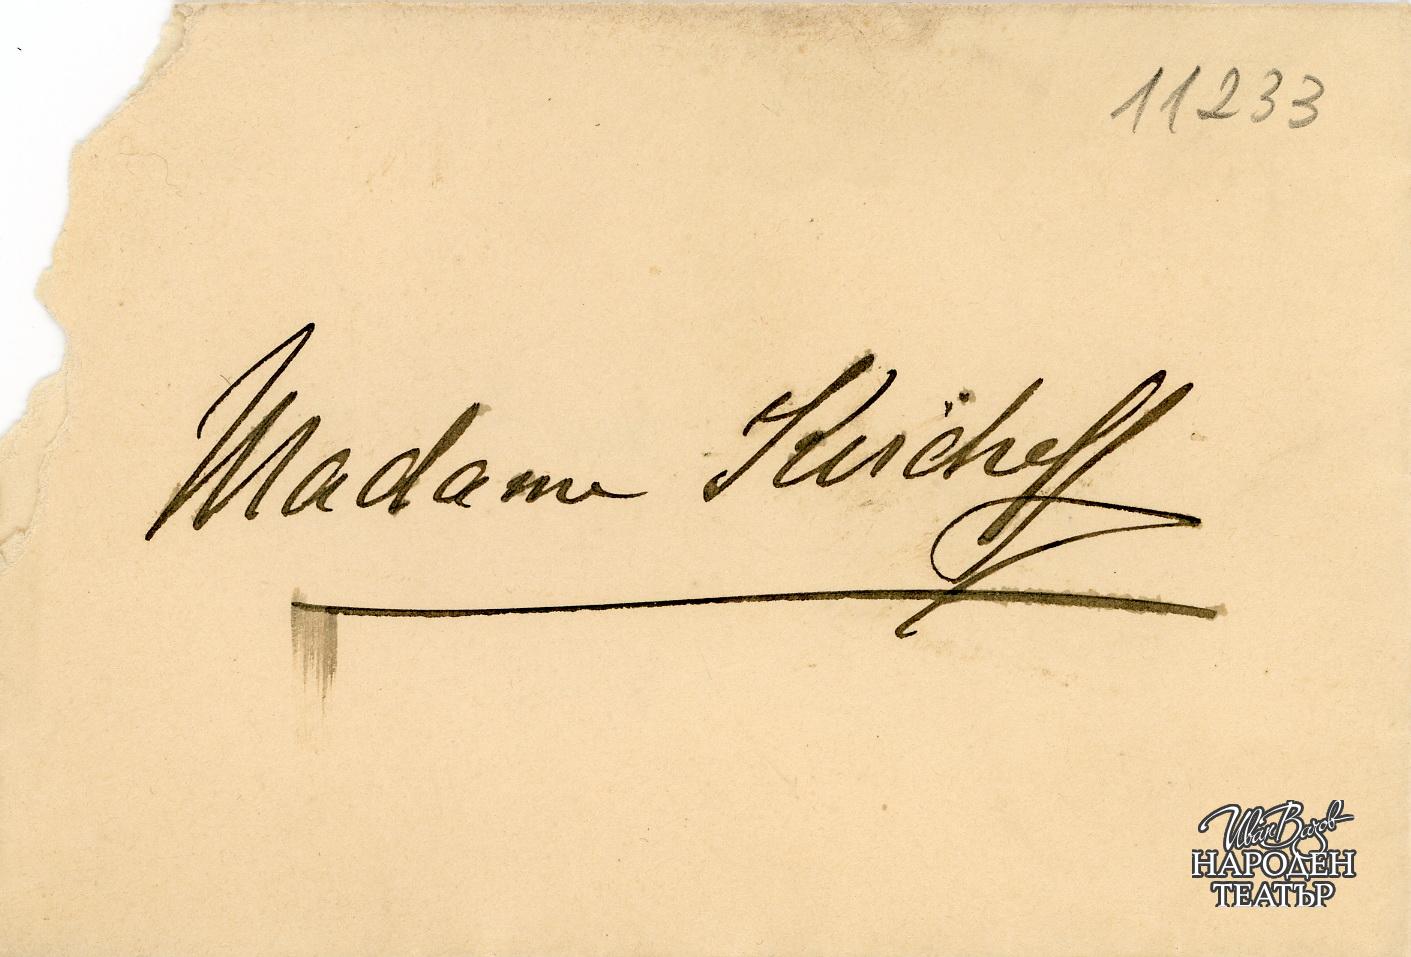 11233
Madame Kircheff
Иван Вазов
НАРОДЕН
ТЕАТЪР